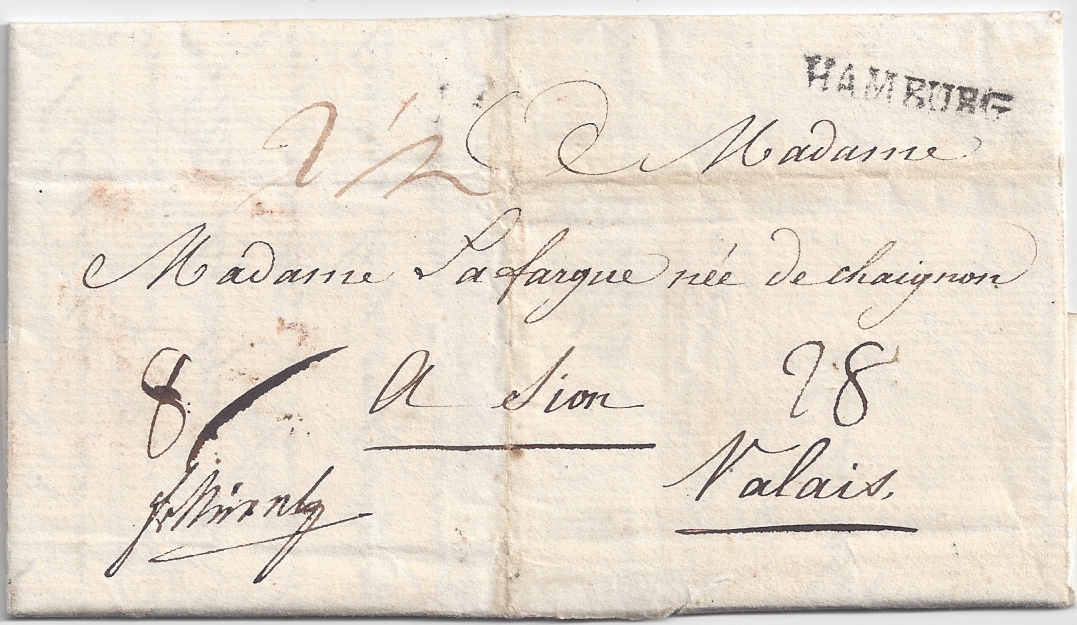 HAMBURG
2 1/2 Madame
Madame Lafargue née de chaignon
8 A Sion 28
fr Nürnbg
Valais.